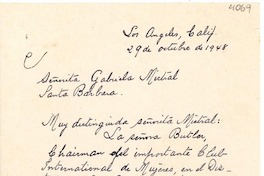 4069
Los Angeles, Calif.
29 de octubre de 1948
Señorita Gabriela Mistral
Santa Bárbara.
Muy distinguida señorita Mistral:
La señora Butler,
Chairman del importante Club
International de Mujeres, en el Dis-